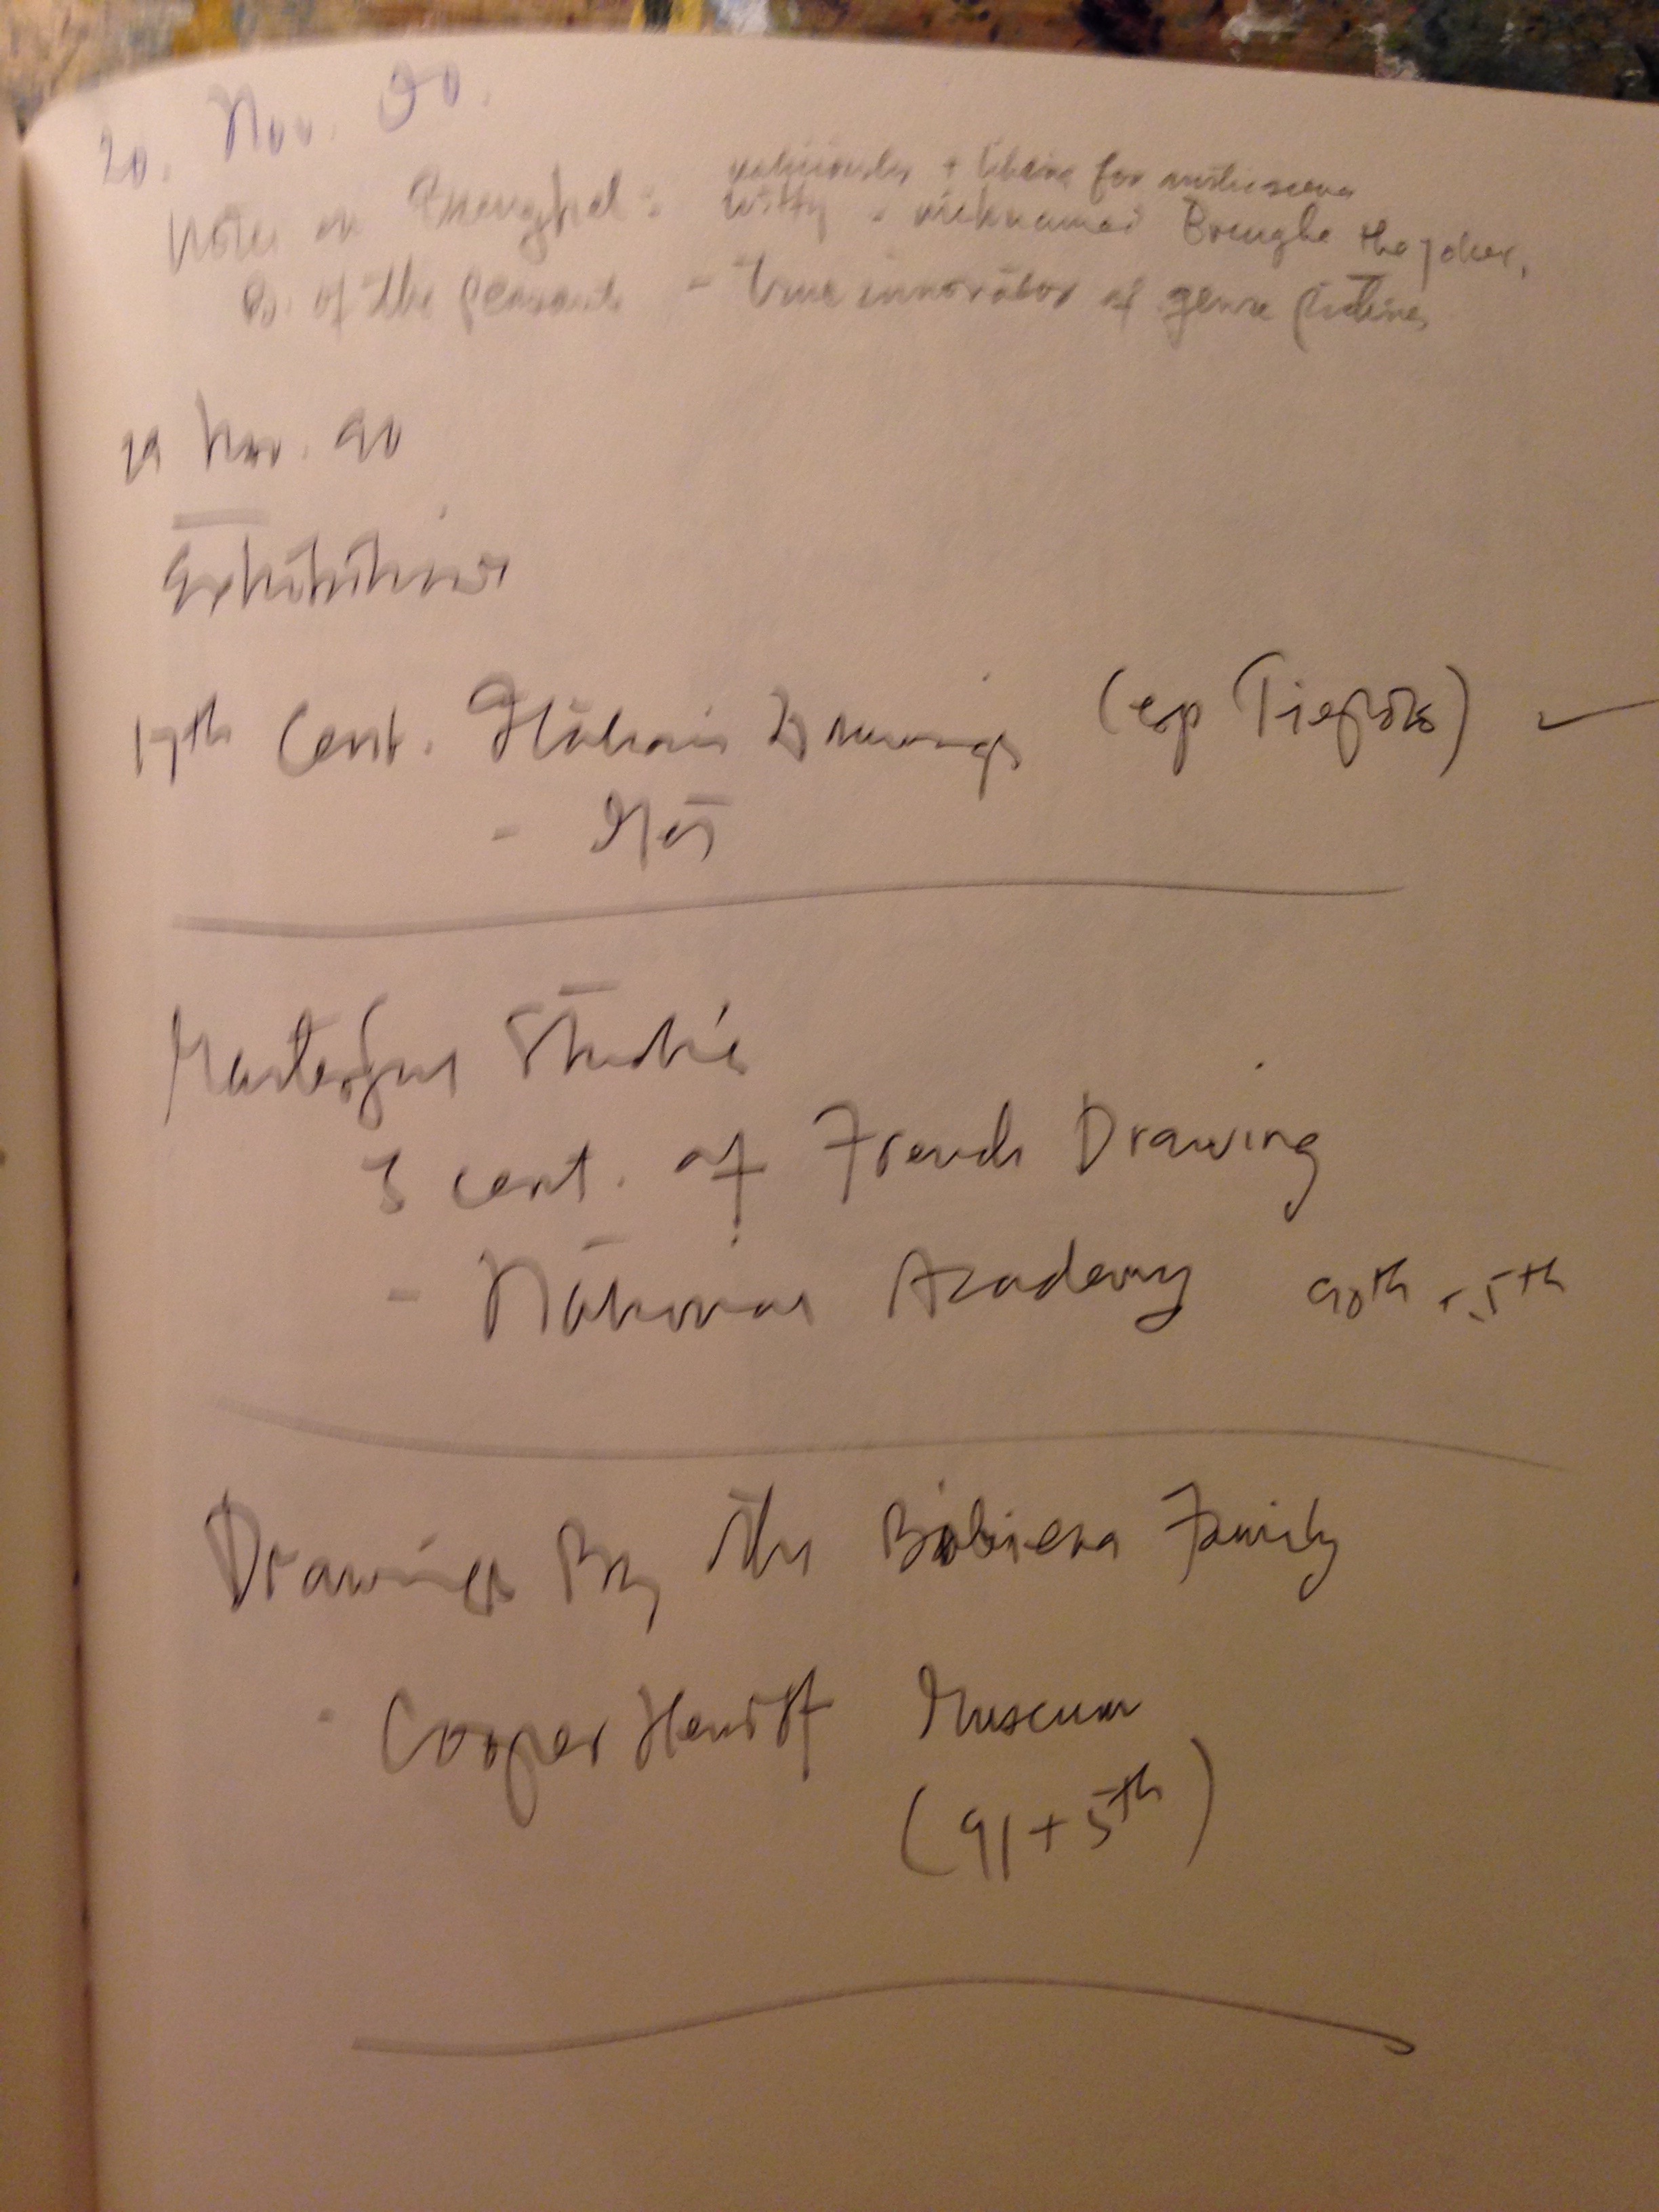 20. Nov. 90.
+ liking for
Notes on Brueghel: witty - nicknamed Brueghe the joker,
B. of the peasants - true innovator of genre
29 Nov. 90
Exhibitions
17th Cent. Italian Drawings (esp Tiepolo) ✓
- Met
Studies
3 cent. of French Drawing
- National Academy 90th + 5th
Drawings By the Bibiena Family
- Cooper Hewitt Museum
(91 + 5th)